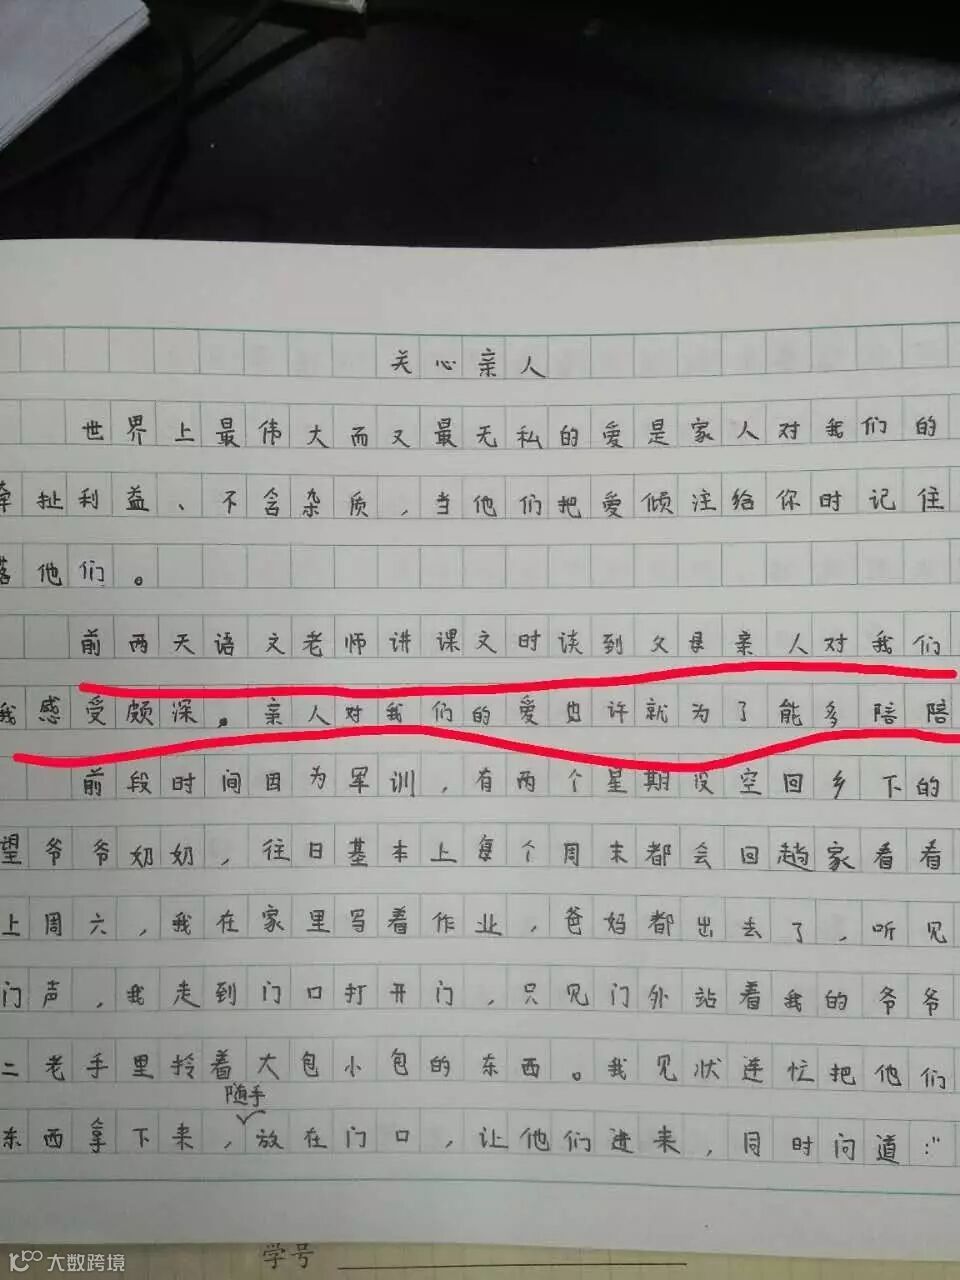 关心亲人
世界上最伟大而又最无私的爱是家人对我们的
牵扯利益、不含杂质，当他们把爱倾注给你时记住
落他们。
前两天语文老师讲课文时谈到父母亲人对我们
我感受颇深。亲人对我们的爱也许就为了能多陪陪
前段时间因为军训，有两个星期没空回乡下的
望爷爷奶奶，往日基本上每个周末都会回趟家看看
上周六，我在家里写着作业，爸妈都出去了，听见
门声，我走到门口打开门，只见门外站着我的爷爷
二老手里拎着大包小包的东西。我见状连忙把他们
随手
东西拿下来，放在门口，让他们进来，同时问道："
学号
大数跨境